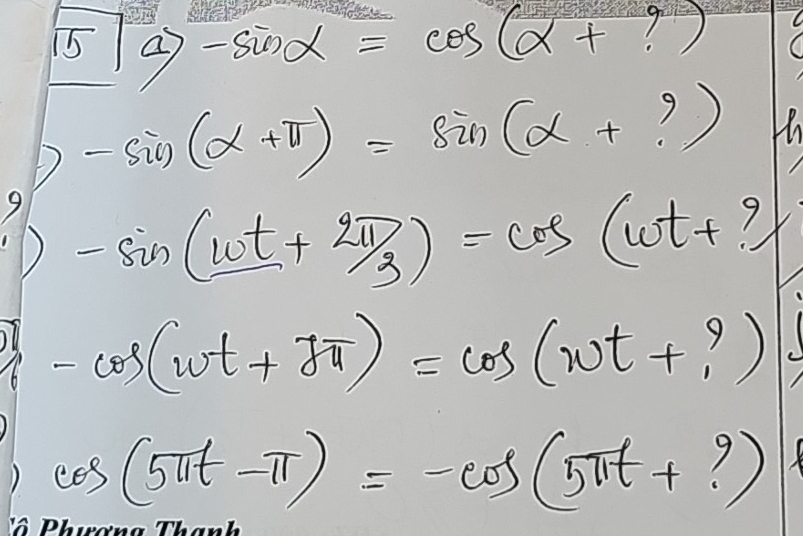 15 a) -sinα = cos(α + ?)
) -sin(α + π) = sin(α + ?)
?) -sin(ωt + 2π/3) = cos(ωt + ?)
-cos(ωt + 8π) = cos(ωt + ?)
) cos(5πt - π) = -cos(5πt + ?)
Cô Phương Thanh